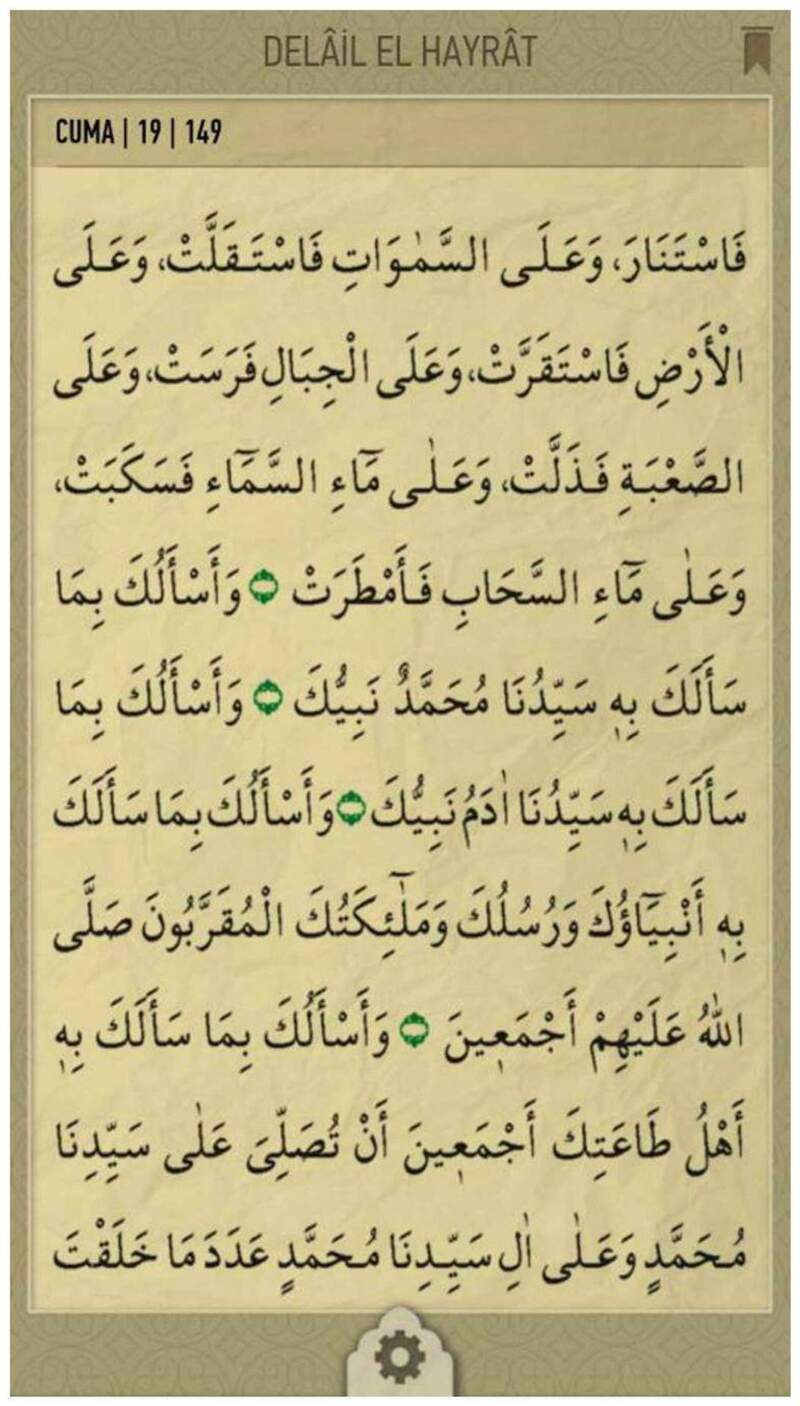 DELÂİL EL HAYRÂT
CUMA | 19 | 149
فَاسْتَنَارَ، وَعَلَى السَّمٰوَاتِ فَاسْتَقَلَّتْ، وَعَلَى
الْأَرْضِ فَاسْتَقَرَّتْ، وَعَلَى الْجِبَالِ فَرَسَتْ، وَعَلَى
الصَّعْبَةِ فَذَلَّتْ، وَعَلٰى مَٓاءِ السَّمَٓاءِ فَسَكَبَتْ،
وَعَلٰى مَٓاءِ السَّحَابِ فَأَمْطَرَتْ ۝ وَأَسْأَلُكَ بِمَا
سَأَلَكَ بِهٖ سَيِّدُنَا مُحَمَّدٌ نَبِيُّكَ ۝ وَأَسْأَلُكَ بِمَا
سَأَلَكَ بِهٖ سَيِّدُنَا اٰدَمُ نَبِيُّكَ ۝ وَأَسْأَلُكَ بِمَا سَأَلَكَ
بِهٖ أَنْبِيَٓاؤُكَ وَرُسُلُكَ وَمَلٰٓئِكَتُكَ الْمُقَرَّبُونَ صَلَّى
اللّٰهُ عَلَيْهِمْ أَجْمَعٖينَ ۝ وَأَسْأَلُكَ بِمَا سَأَلَكَ بِهٖ
أَهْلُ طَاعَتِكَ أَجْمَعٖينَ أَنْ تُصَلِّيَ عَلٰى سَيِّدِنَا
مُحَمَّدٍ وَعَلٰى اٰلِ سَيِّدِنَا مُحَمَّدٍ عَدَدَ مَا خَلَقْتَ